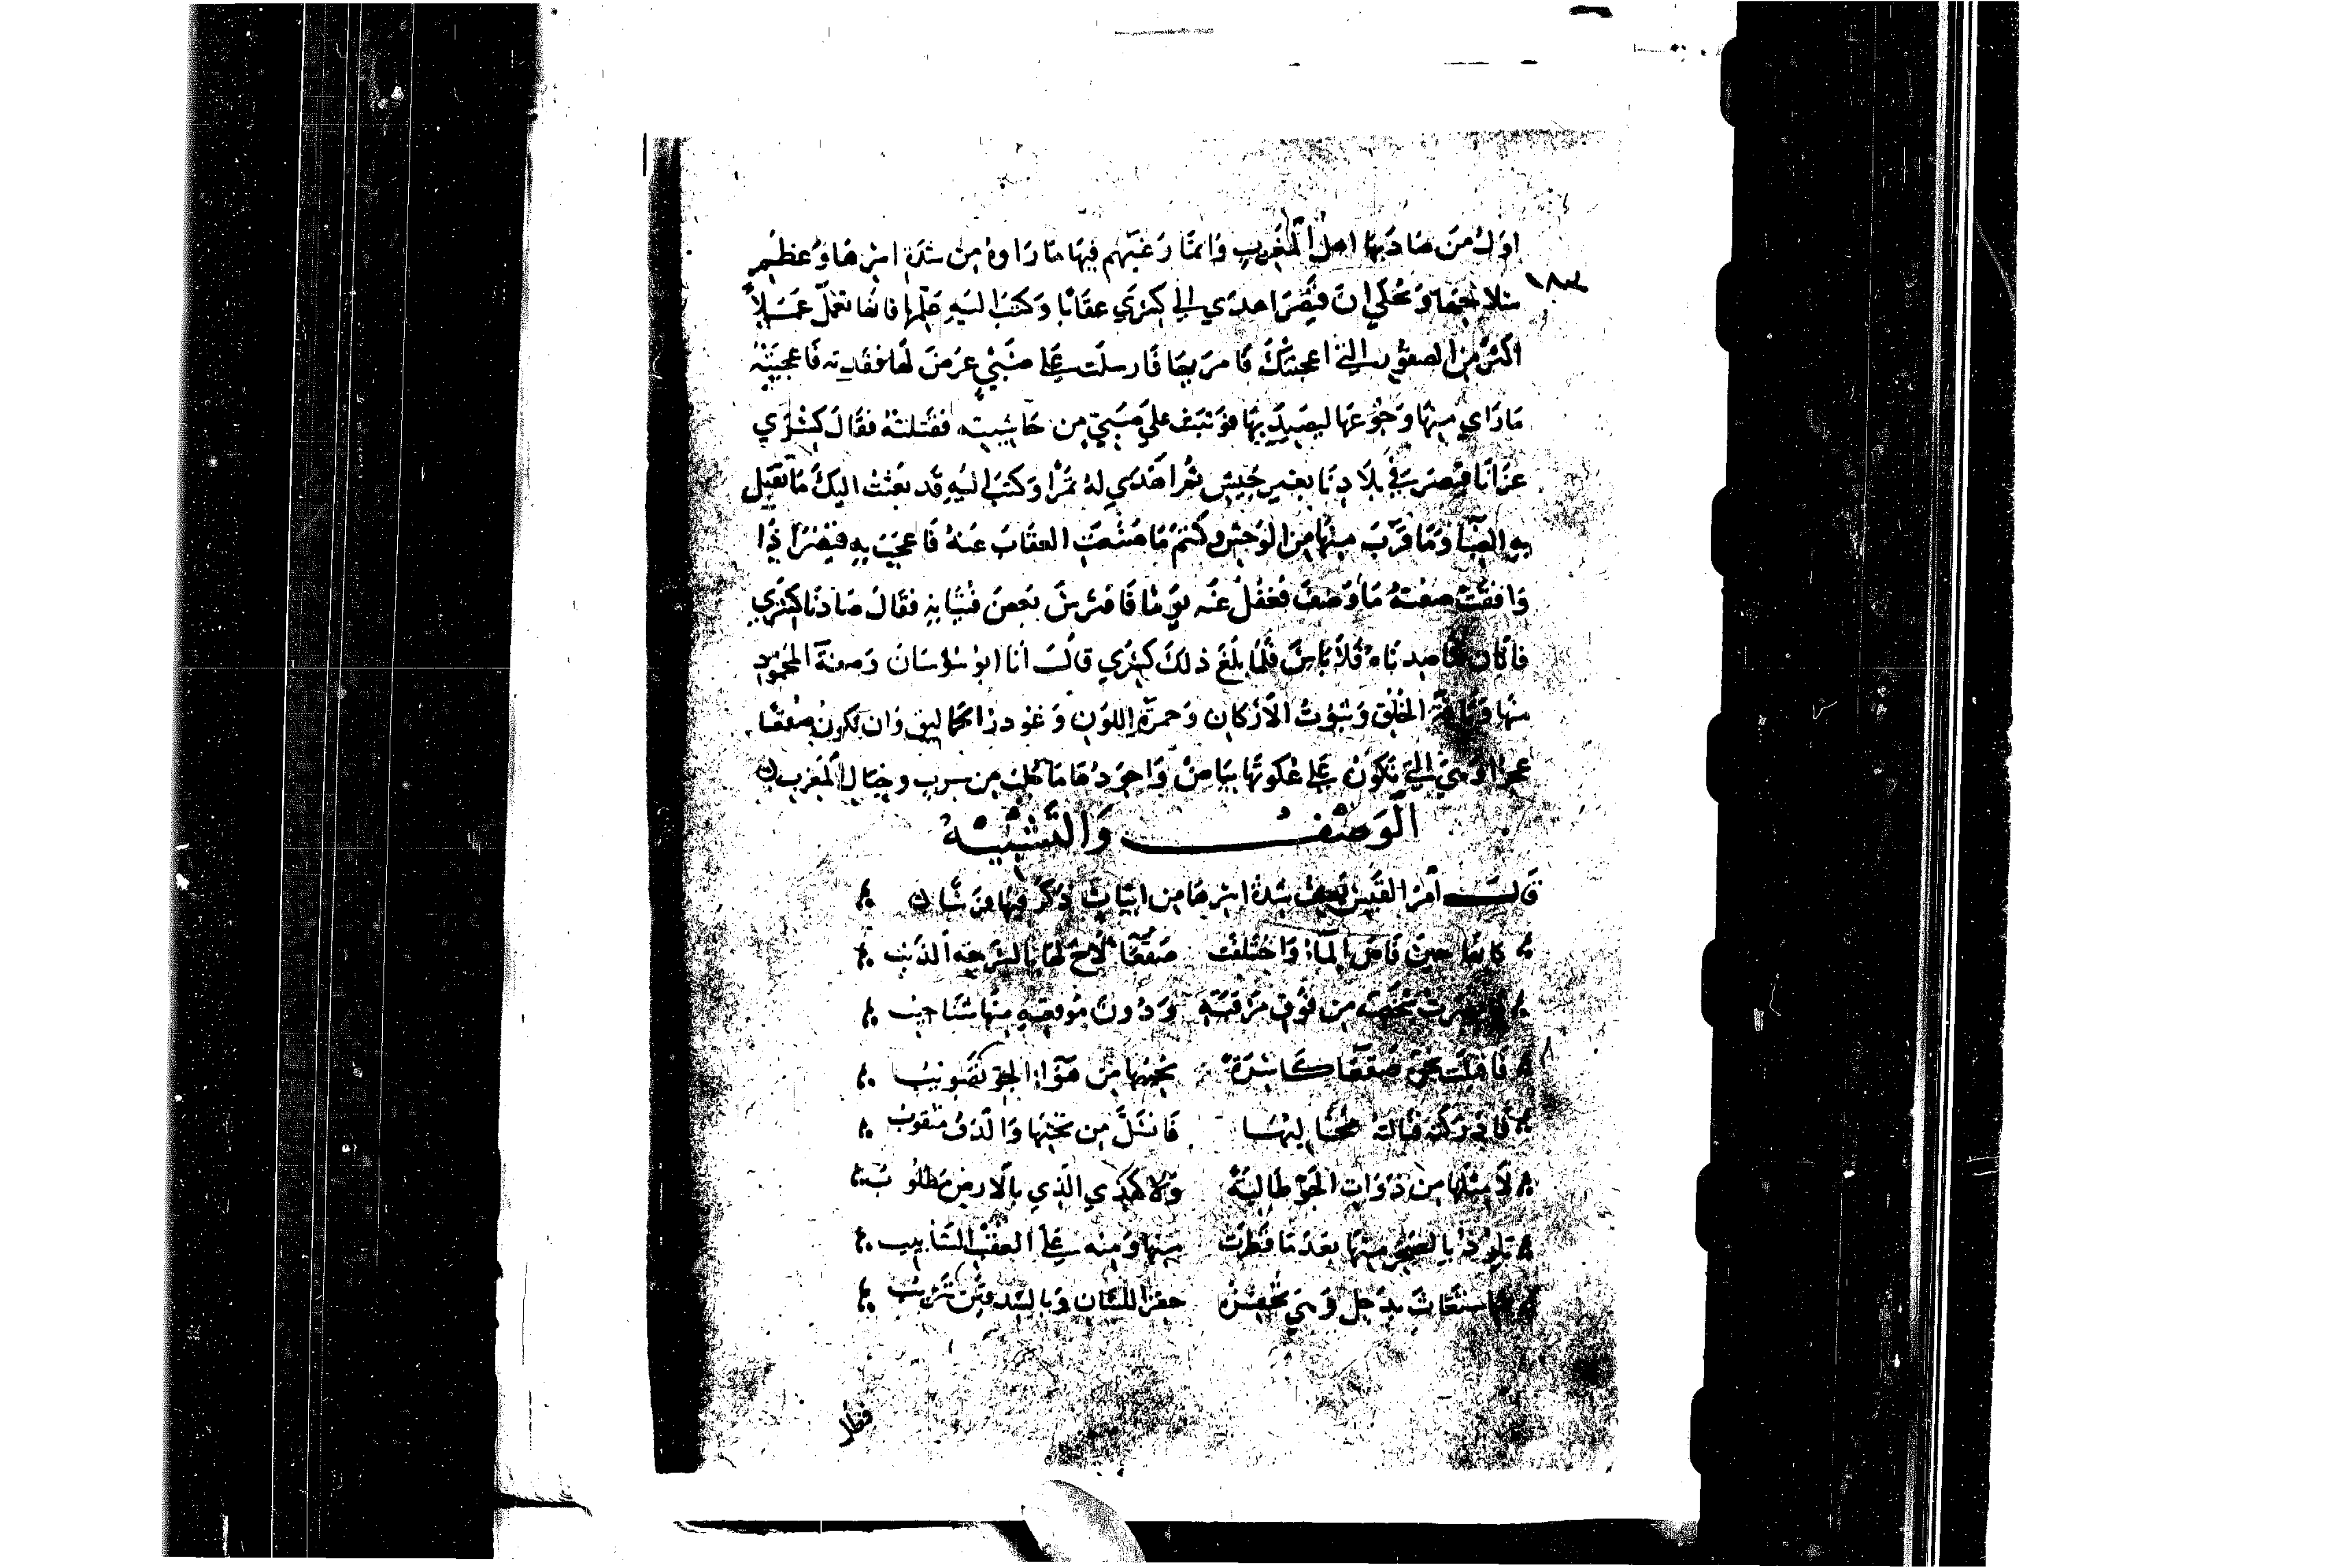 اول من صاد بها اهل المغرب وانما رغبهم فيها ما راوه من شدة اسرها وعظم
١٨٣
سلاحها وَيُحكي ان قيصر اهدي الي كسري عقابا وكتب اليه علمها فانها تعمل عملا
اكثر من الصقور التي اعجبتك فامر بها فارسلت علي ظبي عرض لها فقدته فاعجبته
ما راي منها وجوعها ليصيد بها فوثبت علي صبي من حاشيته فقتلته فقال كسري
غزانا قيصر في بلادنا بغير جيش ثم اهدي له نمرا وكتب اليه قد بعثت اليك ما تقتل
به الظبا وما قرب منها من الوحش وكتم ما صنعت العقاب عنه فاعجب به قيصر اذا
وافقت صفته ما وصف فغفل عنه يوما فافترس بعض فتيانه فقال صادنا كسري
فان كان صدناه فلا باس فلما بلغ ذلك كسري قال انا ابو سوسان وصفة المحمود
منها الخلق وثبوت الاركان وحمرة اللون وغوور الحماليق وان تكون صقعا
عجزا وهي التي تكون علي عكوتها بياض واجودها ما جلب من سرب وجبال المغرب
الوصف والتشبيه
قال امرؤ القيس يصف شدة اسرها من ابيات ذكر فيها فرسا
كانها حين فاض الماء واختلفت صقعا لاح لها بالسرحة الذيب
شخصه من فوق مرقبة ودون موقعه منها شناخيب
فاقبلت نحوه صقعا كاسرة يحثها من هواء الجو تصويب
فادركته فنالته مخاليبها فانسل من تحتها والدف مثقوب
لا مثلها من ذوات الجو طالبة ولا كهذي الذي بالارض مطلوب
تلوذ بالصخر منها بعد ما فطرت منها ومنه علي العقب الشابيب
استغاث بدحل وهي تحفزه حفزا اللسان وبالشدقين تتريب
فظل